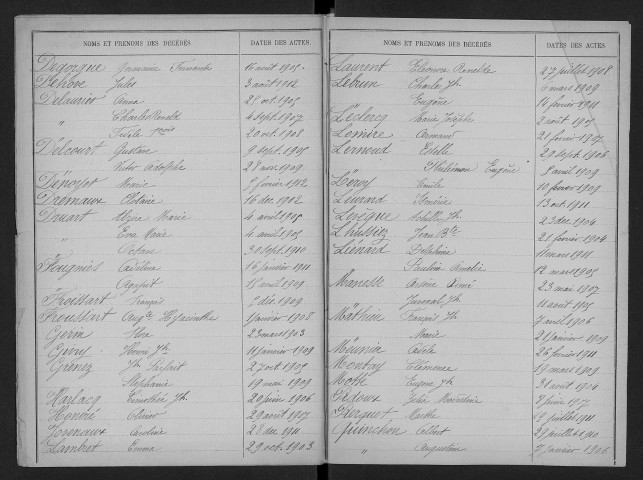 NOMS ET PRÉNOMS DES DÉCÉDÉS DATES DES ACTES.
Degorgue Germaine Fernande 16 août 1905
Dehove Jules 3 août 1912
Delaurier Anna 21 oct 1905
" Charles Ronald 4 sept 1907
" 20 oct 1908
Delcourt Gustave 9 sept 1905
Victor Adolphe 28 nov 1909
Dénoyot Marie 5 février 1912
Drémaux Octavie 16 déc 1902
Druart Marie 4 avril 1905
" Eva Marie 4 avril 1905
" 30 sept 1910
Fougnies Adelina 14 janvier 1911
15 avril 1909
Froissart François 6 déc 1909
Froissart Aug.te Hyacinthe 1 janvier 1908
Gérin 23 mars 1903
Givry Henri 11 janvier 1909
Grenez Jh Parfait 27 oct 1905
Stéphanie 19 mai 1909
Harlacq Timothée Jh 20 juin 1906
Honoré Olivier 20 août 1907
Jovenaux Caroline 28 déc 1911
Lambret Emma 29 oct 1903
NOMS ET PRÉNOMS DES DÉCÉDÉS DATES DES ACTES.
Laurent Eléonore 27 juillet 1908
Lebrun Charles Jh 6 mars 1909
Eugène 14 février 1911
Leclercq Marie Josèphe 2 août 1905
Lemaire Armand 21 février 1907
Lernoud Estelle 29 sept 1906
Philémon Eugène 8 avril 1909
Leroy Emile 10 février 1909
13 oct 1911
Lévêque Achille Jh 23 déc 1904
Lhussiez Jean Bte 21 février 1904
Liénard Delphine 11 mars 1911
Pauline Amélie 12 mars 1905
Manesse Aimé 23 mai 1907
Juvénal Jh 11 août 1905
Mathieu François Jh 7 avril 1906
Marie 21 janvier 1909
Meunier Adèle 26 février 1911
Montay Clémence 19 mars 1909
Motte Eugène Jh 31 août 1904
Julie 8 juin 1907
Marthe 19 juillet 1911
Quinchon Colbert 29 juillet 1910
" Augustine 7 janvier 1906